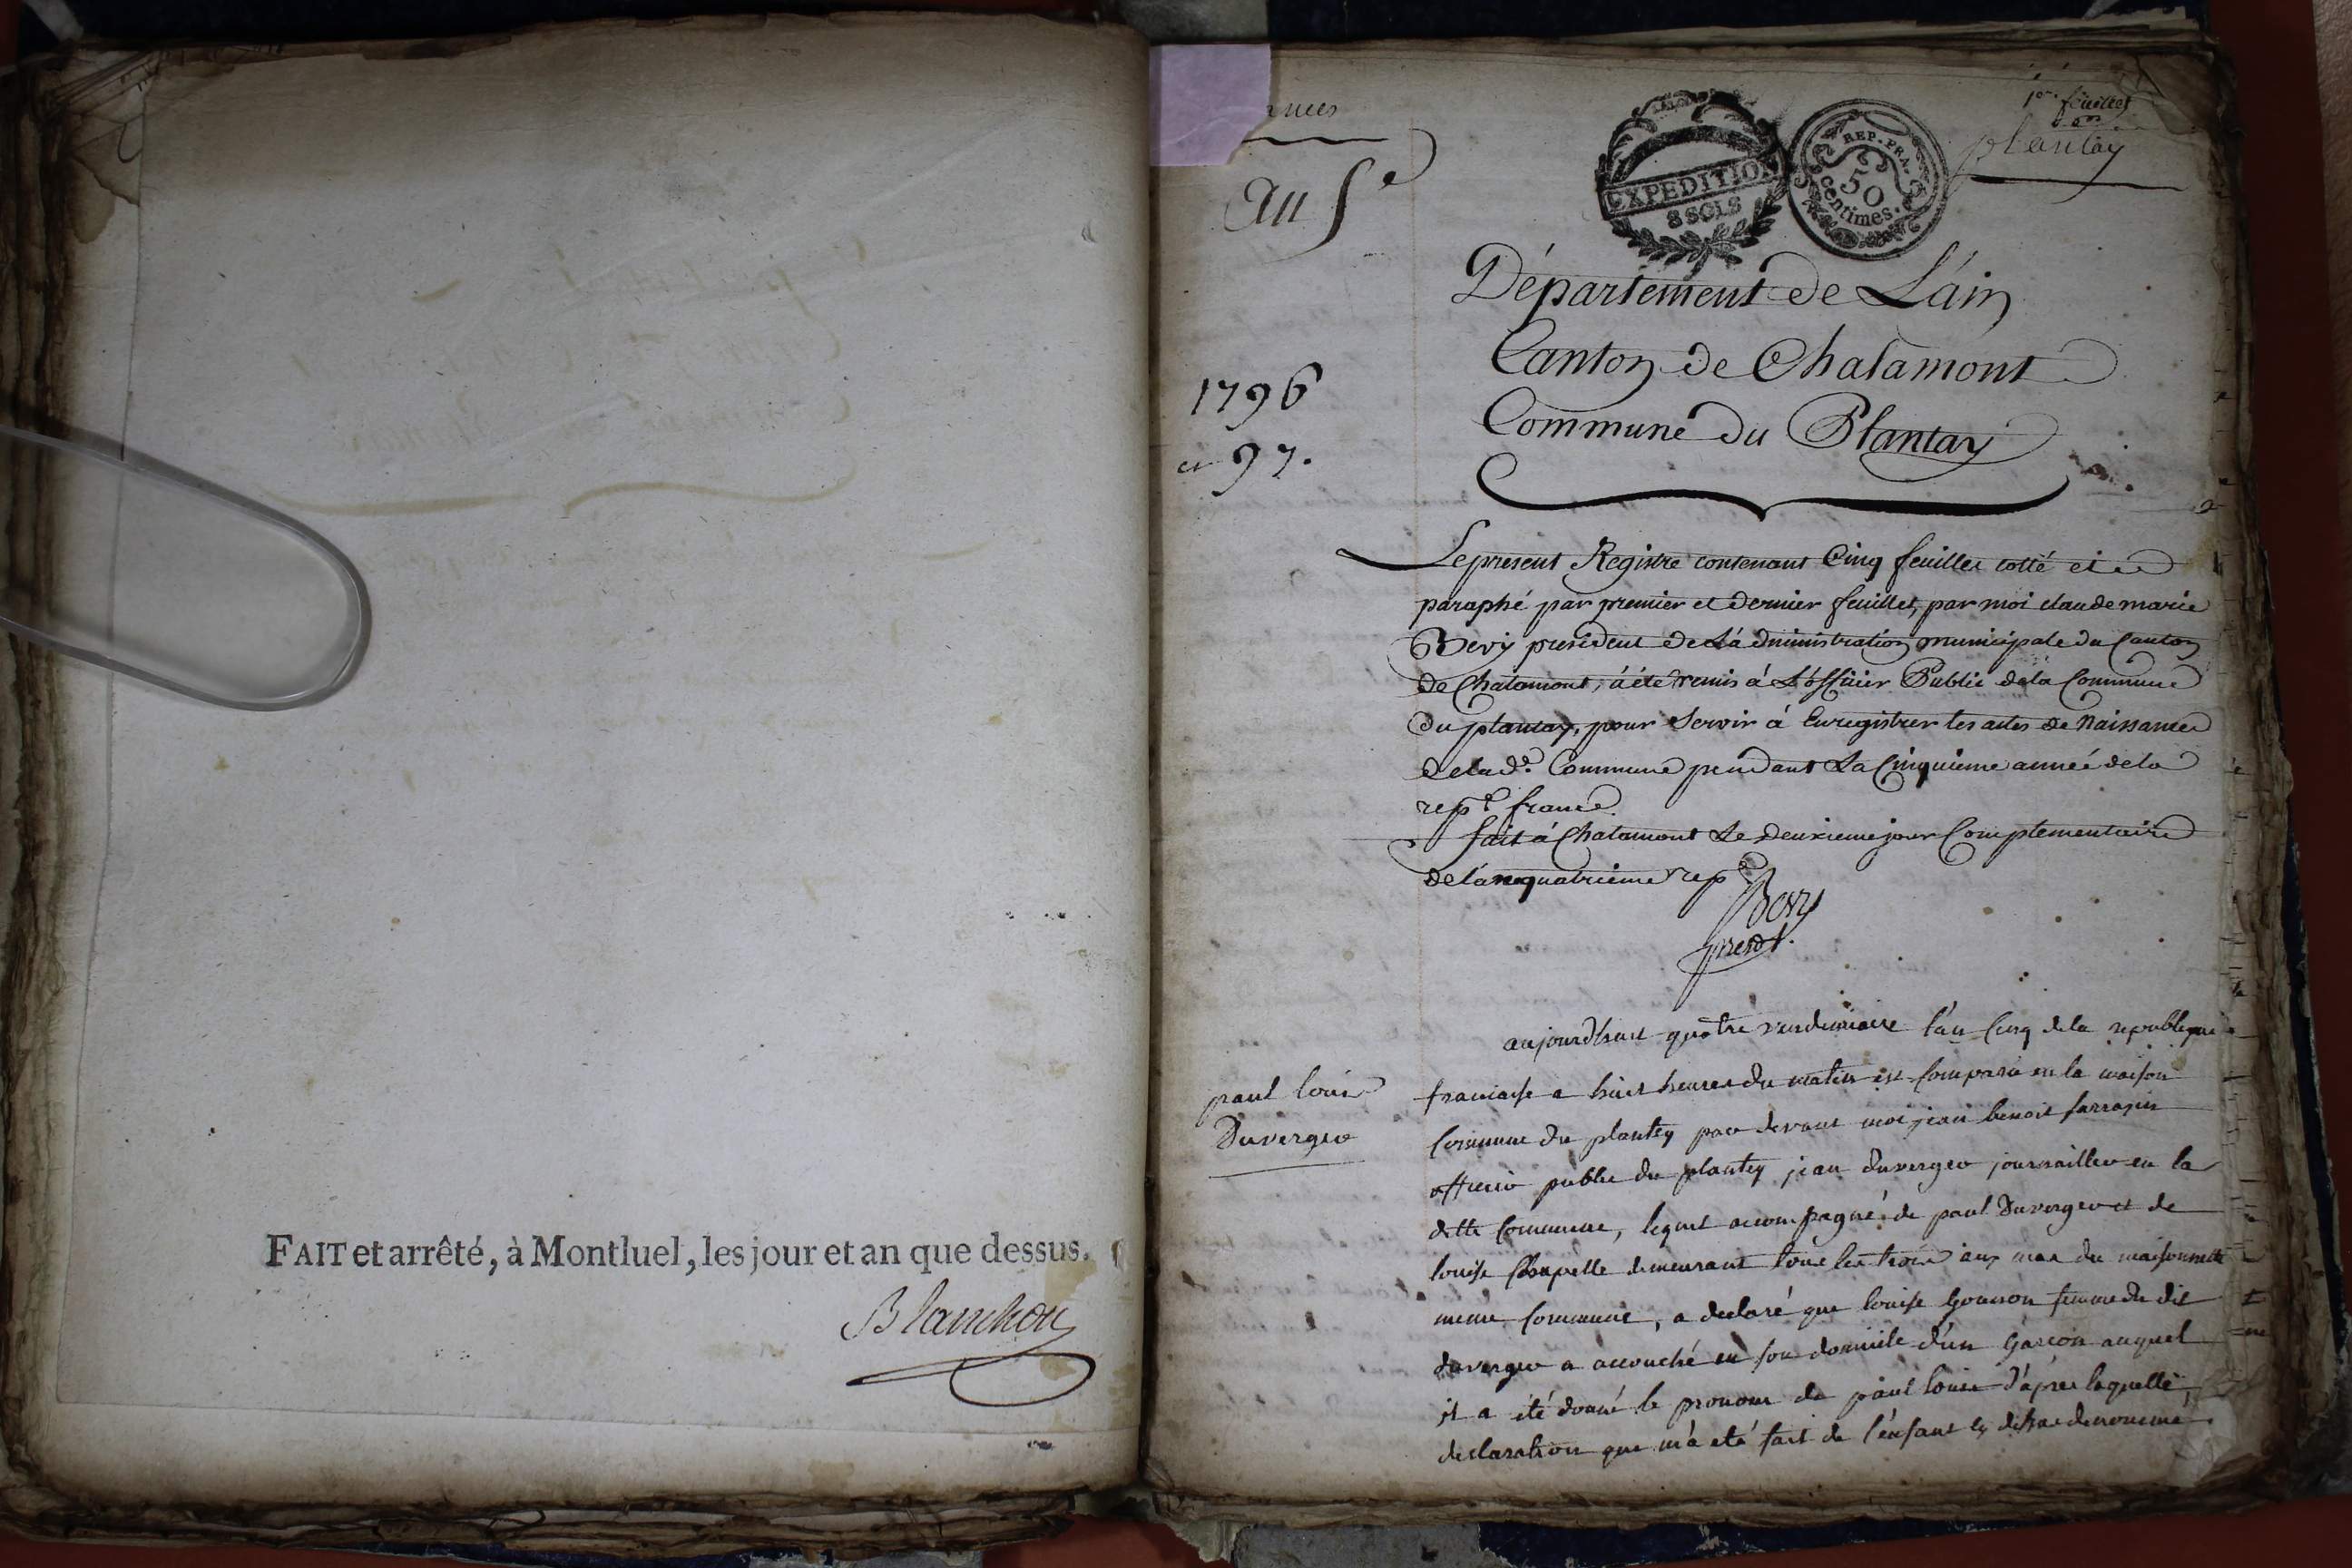 FAIT et arrêté, à Montluel, les jour et an que dessus.
Blanchon
An 5e
1796
et 97.
EXPEDITION
8 SOLS
REP. FRA.
50
centimes.
1er feuillet
plantay
Département de L'ain
Canton de Chalamont
Commune du Plantay
Le present Registre contenant Cinq feuilles cotté et
paraphé par premier et dernier feuillet, par moi claude marie
Bevy president de L'administration municipale du Canton
de Chalamont, à été remis à L'officier Public de la Commune
du plantay, pour servir à Enregistrer les actes de Naissance
de lad.e Commune pendant La Cinquieme année de la
rep.e france
fait à Chalamont Le deuxieme jour Complementaire
de l'an quatrieme rep.e
Bevy
presdt.
paul louis
Duverger
aujourdhuit quatre vendemiaire l'an Cinq de la republique
francaise a huit heures du matin est Comparu en la maison
Commune du plantey par devant moi jean benoit sarrasin
officier public du plantey jean duverger journaillier en la
ditte Commune, lequel accompagné de paul Duverger et de
louise Chapelle demeurant tous les trois aux mas du maisonnette
meme Commune, a declaré que louise femme du dit
duverger a accouché en son domicile d'un garcon auquel
il a été donné le pronom de paul louis d'apres laquelle
declaration que m'a eté fait de l'enfant cy dessus denommé